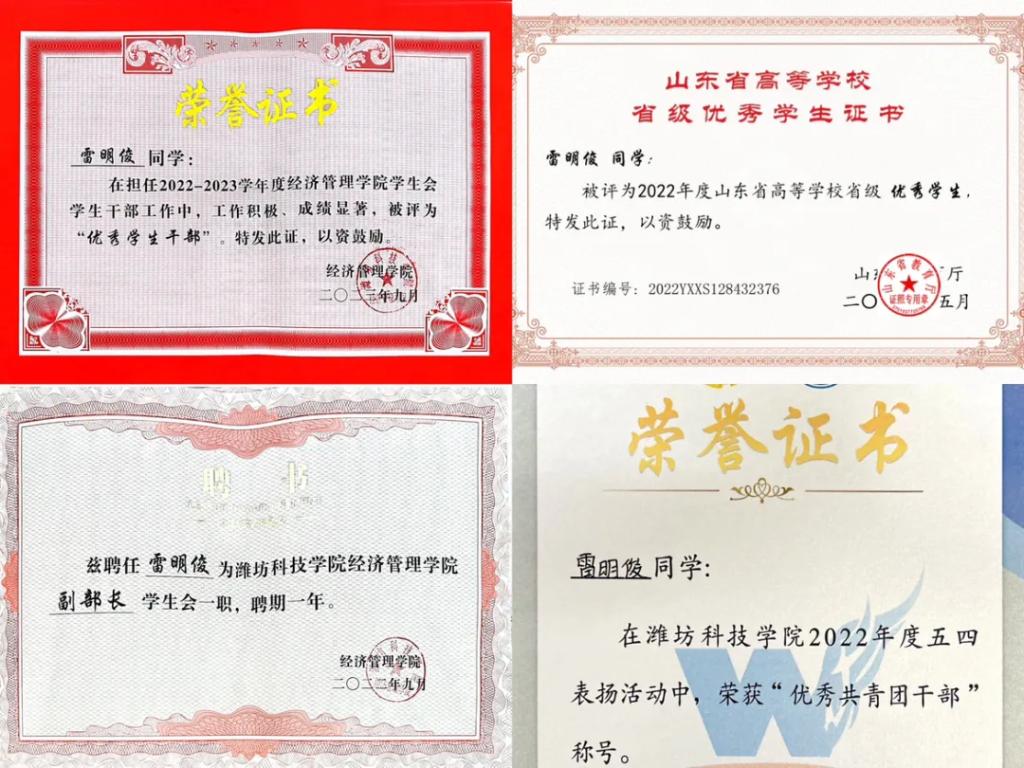 荣誉证书
雷明俊 同学：
在担任2022-2023学年度经济管理学院学生会
学生干部工作中，工作积极、成绩显著，被评为
“优秀学生干部”。特发此证，以资鼓励。
经济管理学院
二〇二三年九月
山东省高等学校
省级优秀学生证书
雷明俊 同学：
被评为2022年度山东省高等学校省级 优秀学生，
特发此证，以资鼓励。
证书编号：2022YXXS128432376
山东省教育厅
证照专用章
山 厅
二〇 五月
聘 书
兹聘任 雷明俊 为潍坊科技学院经济管理学院
副部长 学生会一职，聘期一年。
经济管理学院
二〇二二年九月
荣誉证书
雷明俊同学：
在潍坊科技学院2022年度五四
表扬活动中，荣获“优秀共青团干部”
称号。